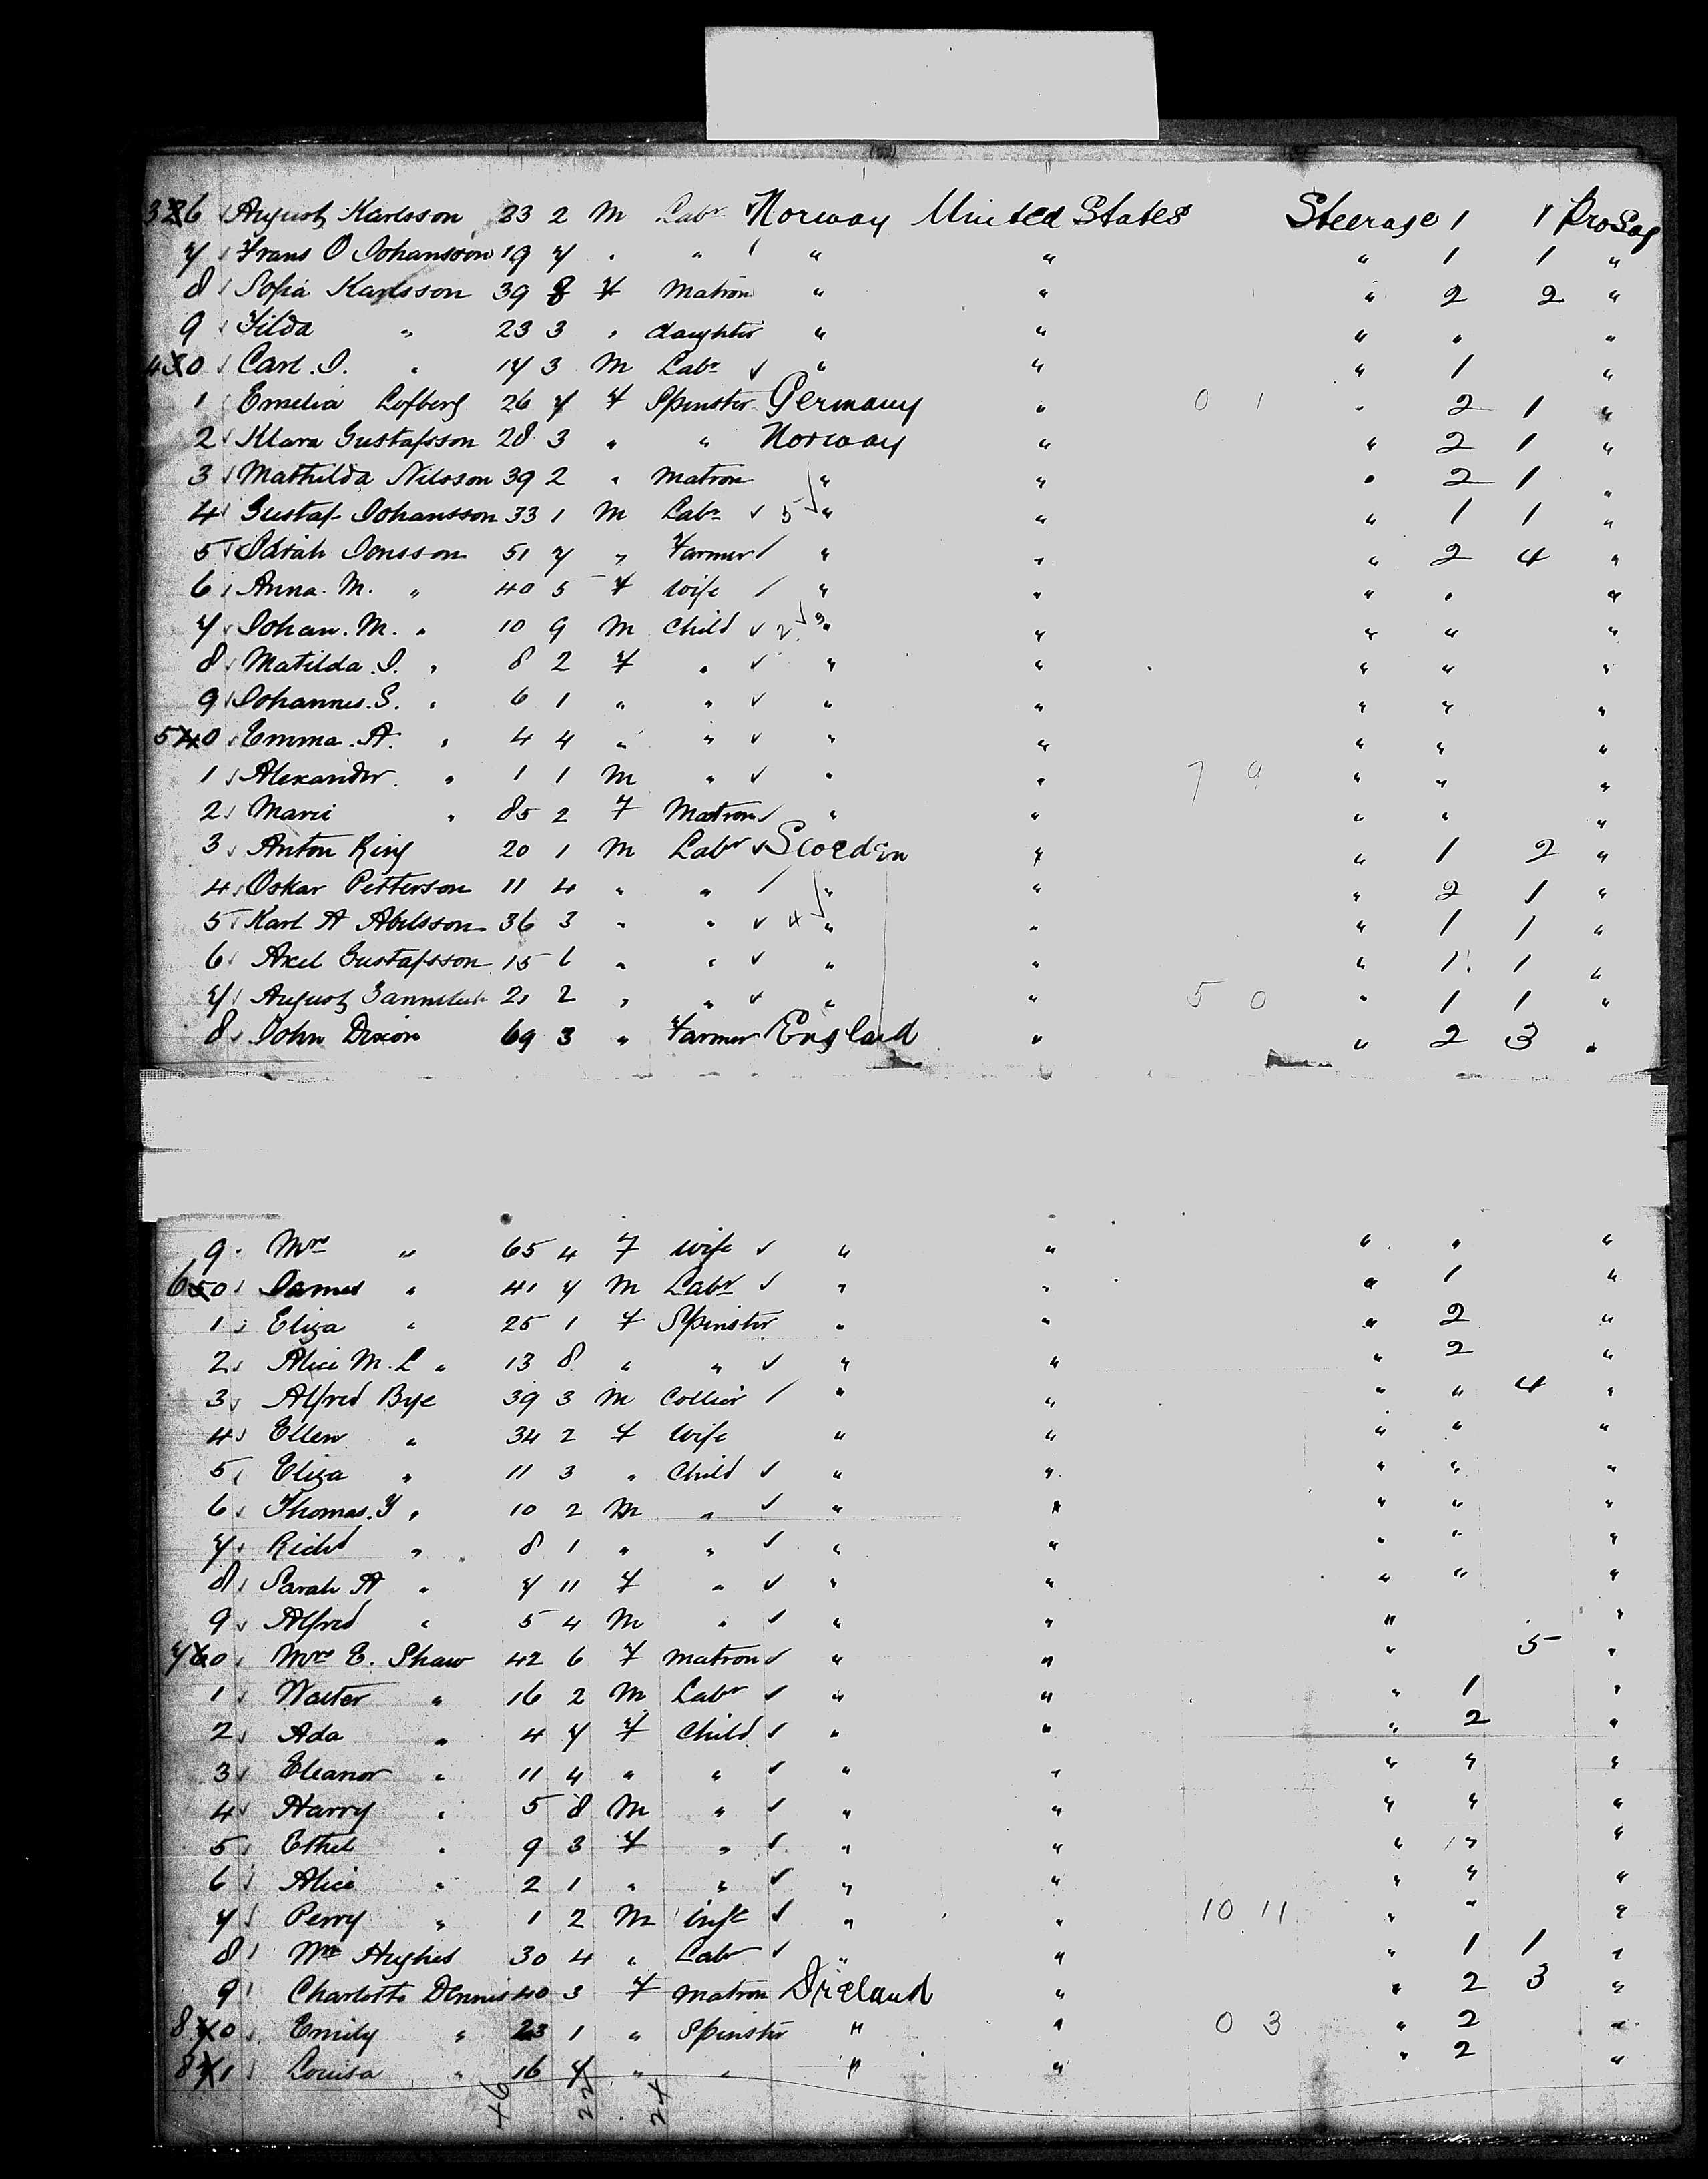 326 August Karlsson 23 2 M Labr Norway United States Steerage 1 1 ProSag
7 Frans O Johansson 19 7 " " " " " 1 1 "
8 Sofia Karlsson 39 8 F Matron " " " 2 2 "
9 Tilda " 23 3 " daughter " " " " "
430 Carl. J. " 17 3 M Labr " " " 1 "
1 Emelia Lofberg 26 7 F Spinster Germany " 0 1 " 2 1 "
2 Klara Gustafsson 28 3 " " Norway " " 2 1 "
3 Mathilda Nilsson 39 2 " Matron " " " 2 1 "
4 Gustaf Johansson 33 1 M Labr 5 " " " 1 1 "
5 Jonsson 51 7 " Farmer " " " 2 4 "
6 Anna. M. " 40 5 F Wife " " " " "
7 Johan. M. " 10 9 M Child " " " " "
8 Matilda. J. " 8 2 F " " " " " "
9 Johannes. S. " 6 1 " " " " " " "
540 Emma. A. " 4 4 " " " " " " "
1 Alexander " 1 1 M " " " 7 9 " " "
2 Marie " 85 2 F Matron " " " " "
3 Anton Ring 20 1 M Labr Sweden " " 1 2 "
4 Oskar Petterson 11 4 " " " " " 2 1 "
5 Karl A Abelsson 36 3 " " 4 " " " 1 1 "
6 Axel Gustafsson 15 6 " " " " " 1 1 "
7 August 21 2 " " " " 5 0 " 1 1 "
8 John Dixon 69 3 " Farmer England " " 2 3 "
9 Mrs " 65 4 F Wife " " " " "
650 James " 41 7 M Labr " " " 1 "
1 Eliza " 25 1 F Spinster " " " 2 "
2 Alice M. L " 13 8 " " " " " 2 "
3 Alfred Bye 39 3 M Collier " " " " 4 "
4 Ellen " 34 2 F Wife " " " " "
5 Eliza " 11 3 " Child " " " " "
6 Thomas. Y " 10 2 M " " " " " "
7 Richd " 8 1 " " " " " " "
8 Sarah A " 7 11 F " " " " " "
9 Alfred " 5 4 M " " " " "
760 Mrs E. Shaw 42 6 F Matron " " " 5 "
1 Walter " 16 2 M Labr " " " 1 "
2 Ada " 4 7 F Child " " " 2 "
3 Eleanor " 11 4 " " " " " " "
4 Harry " 5 8 M " " " " " "
5 Ethel " 9 3 F " " " " " "
6 Alice " 2 1 " " " " " " "
7 Perry " 1 2 M inft " " 10 11 " " "
8 Wm Hughes 30 4 " Labr " " " 1 1 "
9 Charlotte Dennes 40 3 F Matron Ireland " " 2 3 "
870 Emily " 23 1 " Spinster " " 0 3 " 2 "
871 Louisa " 16 7 " " " " " 2 "
46 22 24